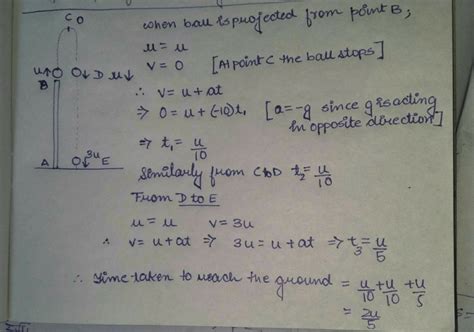 C O
u↑ O O↓ D u↓
B
A O↓ 3u E
when ball is projected from point B;
u = u
v = 0 [At point C the ball stops]
∴ v = u + at
⇒ 0 = u + (-10)t₁ [a = -g since g is acting in opposite direction]
⇒ t₁ = u/10
Similarly from C to D t₂ = u/10
From D to E
u = u v = 3u
∴ v = u + at ⇒ 3u = u + at ⇒ t₃ = u/5
∴ Time taken to reach the ground = u/10 + u/10 + u/5
= 2u/5